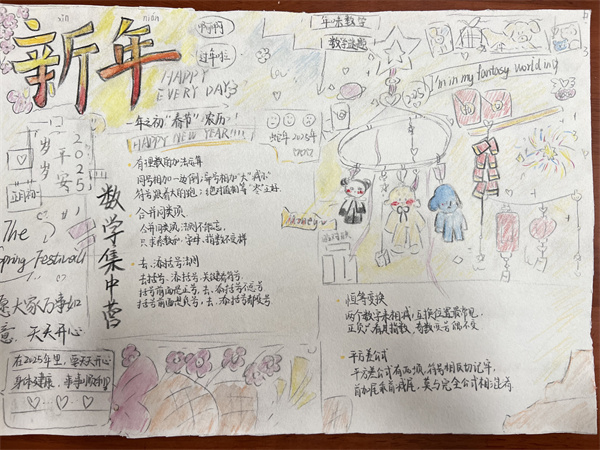 xīn nián
新年
啊啊
过年啦
HAPPY
EVERY DAY
一年之初"春节"农历
HAPPY NEW YEAR!!!!
蛇年2025年
年味数学
数学迷题
I'm in my fantasy world my
2025
岁岁平安
The
Spring Festival
愿大家万事如
意，天天开心
在2025年里，要天天开心
身体健康，事事顺利
数学集中营
有理数的加法运算
同号相加一边倒；异号相加"大"减"小"
符号跟着大的跑；绝对值相等"零"正好
合并同类项
合并同类项，法则不能忘
只求系数和，字母、指数不变样
去、添括号法则
去括号、添括号，关键看符号
括号前面是正号，去、添括号不变号
括号前面是负号，去、添括号都变号
恒等变换
两个数字来相减，互换位置最常见
正负只看其指数，奇数变号偶不变
平方差公式
平方差公式有两项，符号相反切记牢
首加尾乘首减尾，莫与完全公式相混淆